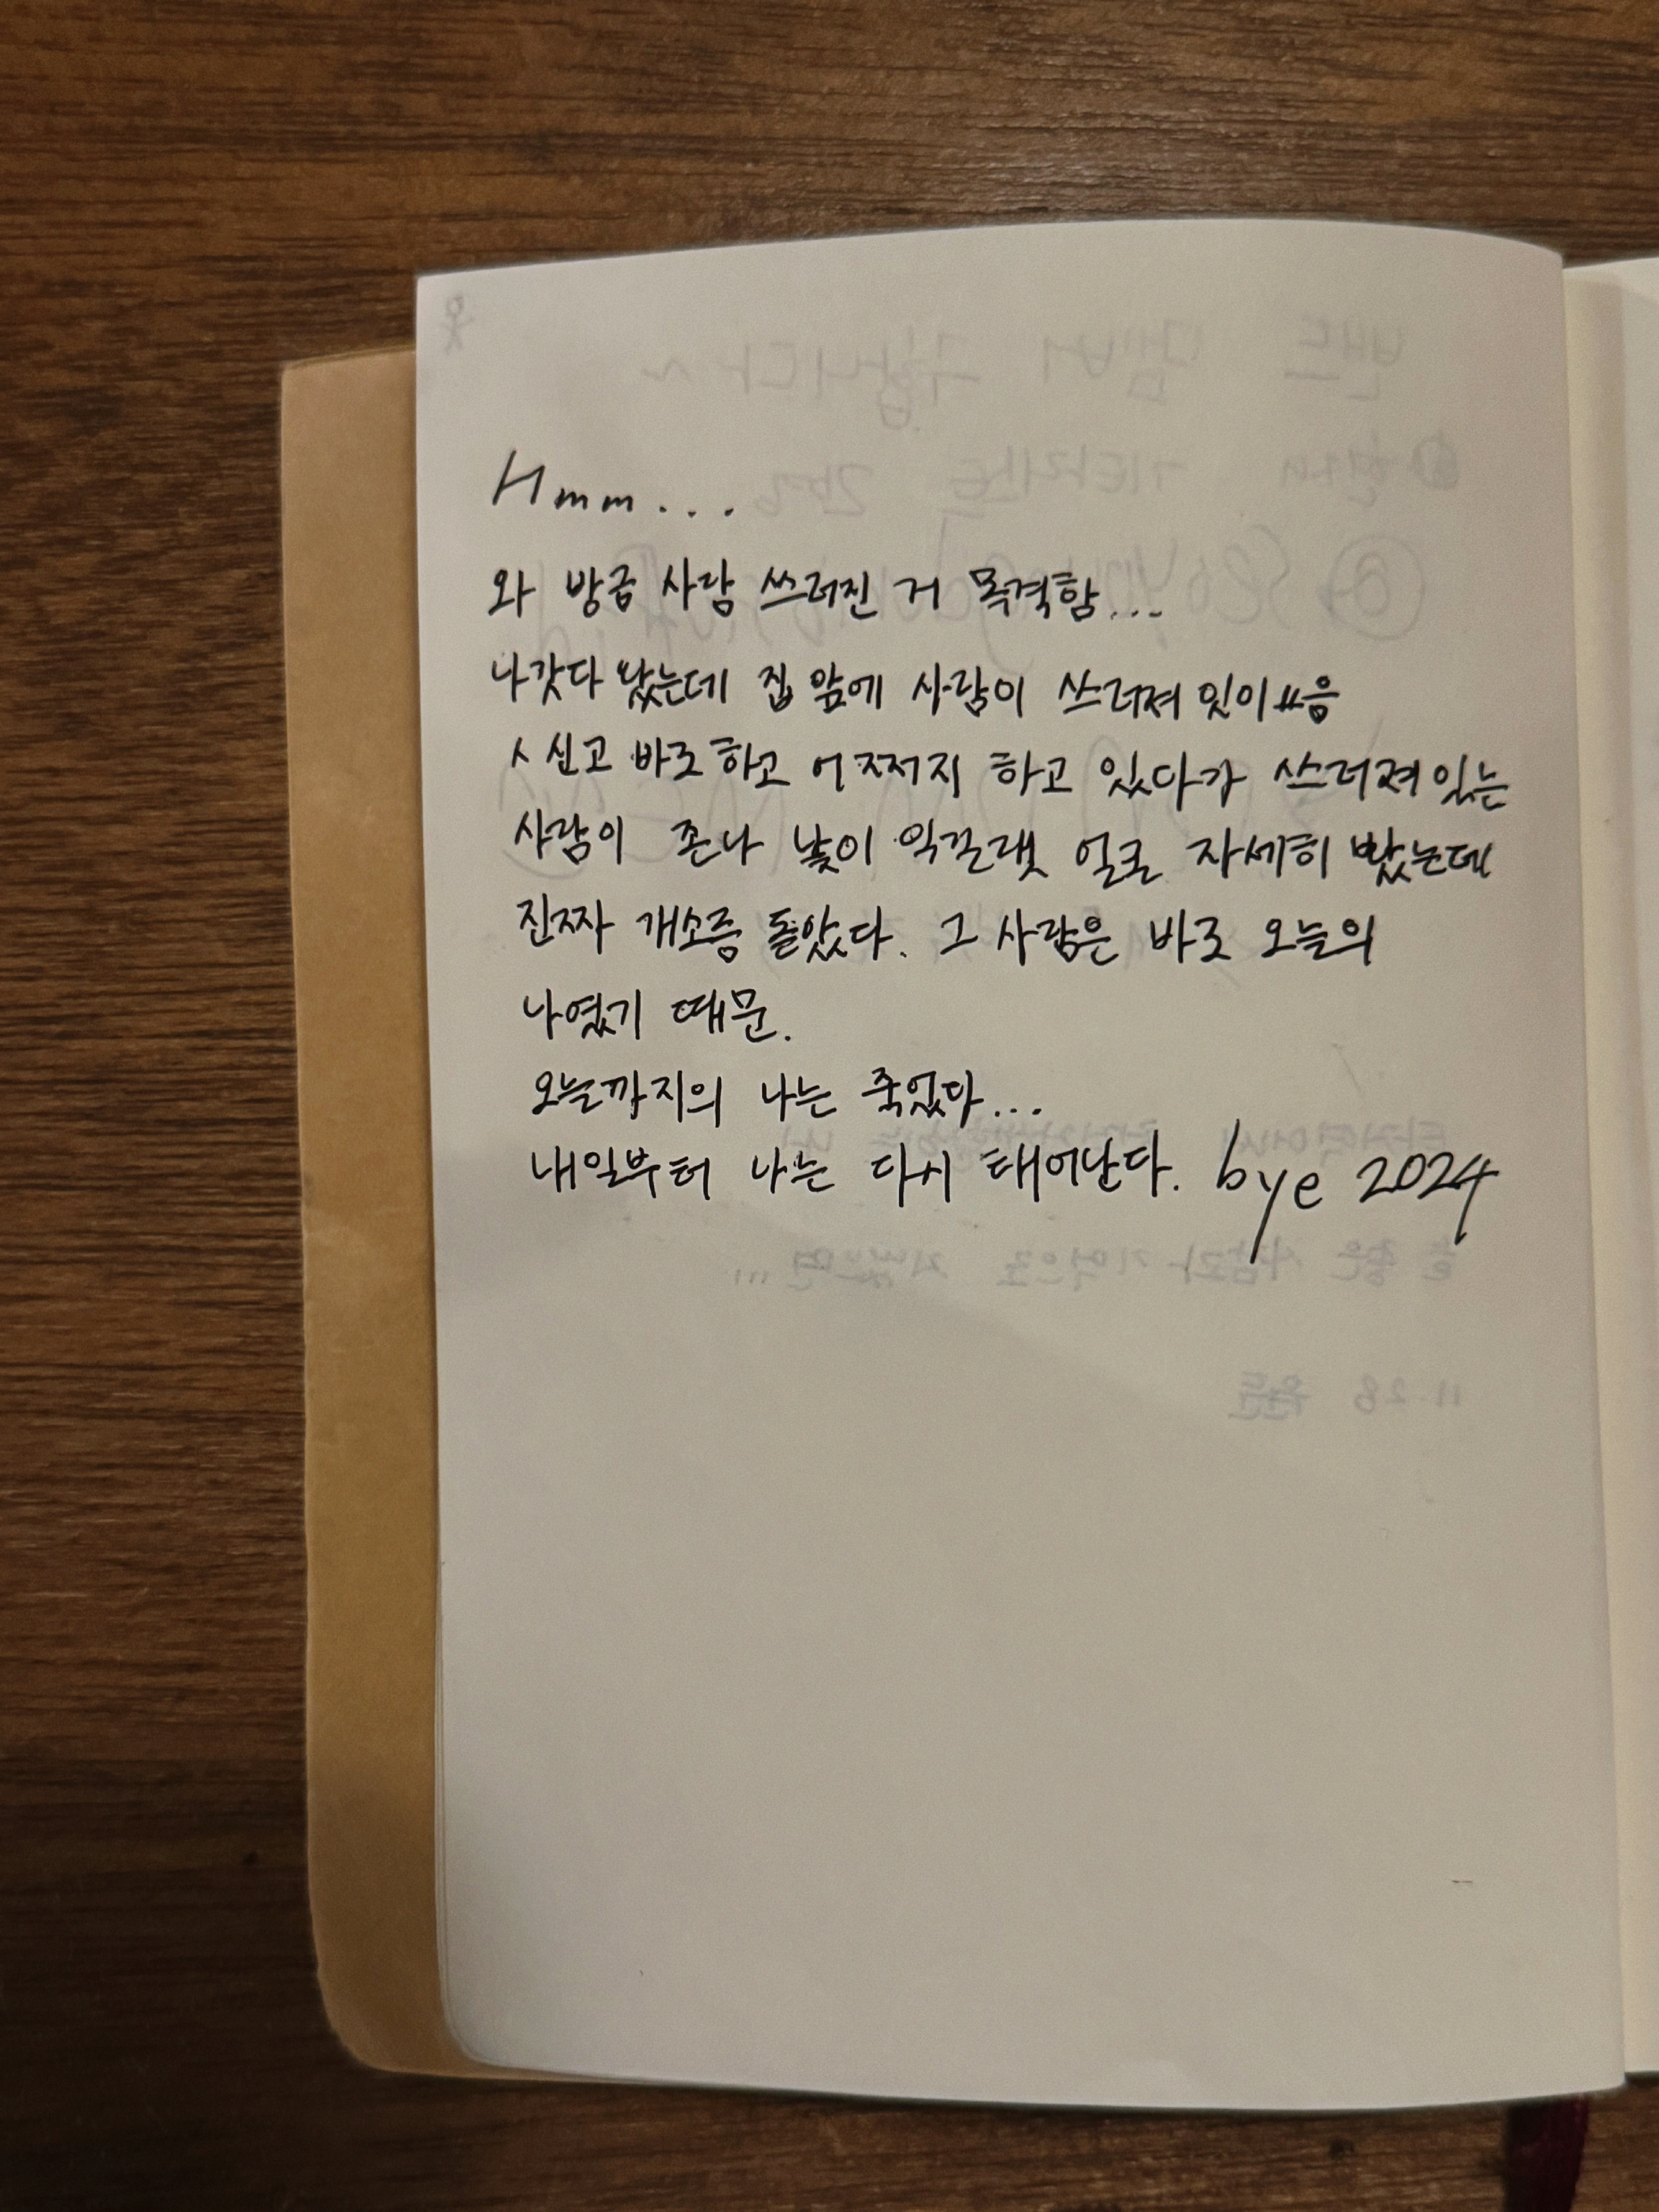 Hmm...
와 방금 사람 쓰러진 거 목격함...
나갓다 왔는데 집 앞에 사람이 쓰러져 있이ㅆ음
ㅅ신고 바로 하고 어쩌지 하고 있다가 쓰러져 있는
사람이 존나 낯이 익길래 얼른 자세히 봤는데
진짜 개소름 돋았다. 그 사람은 바로 오늘의
나였기 때문.
오늘까지의 나는 죽었다...
내일부터 나는 다시 태어난다. bye 2024